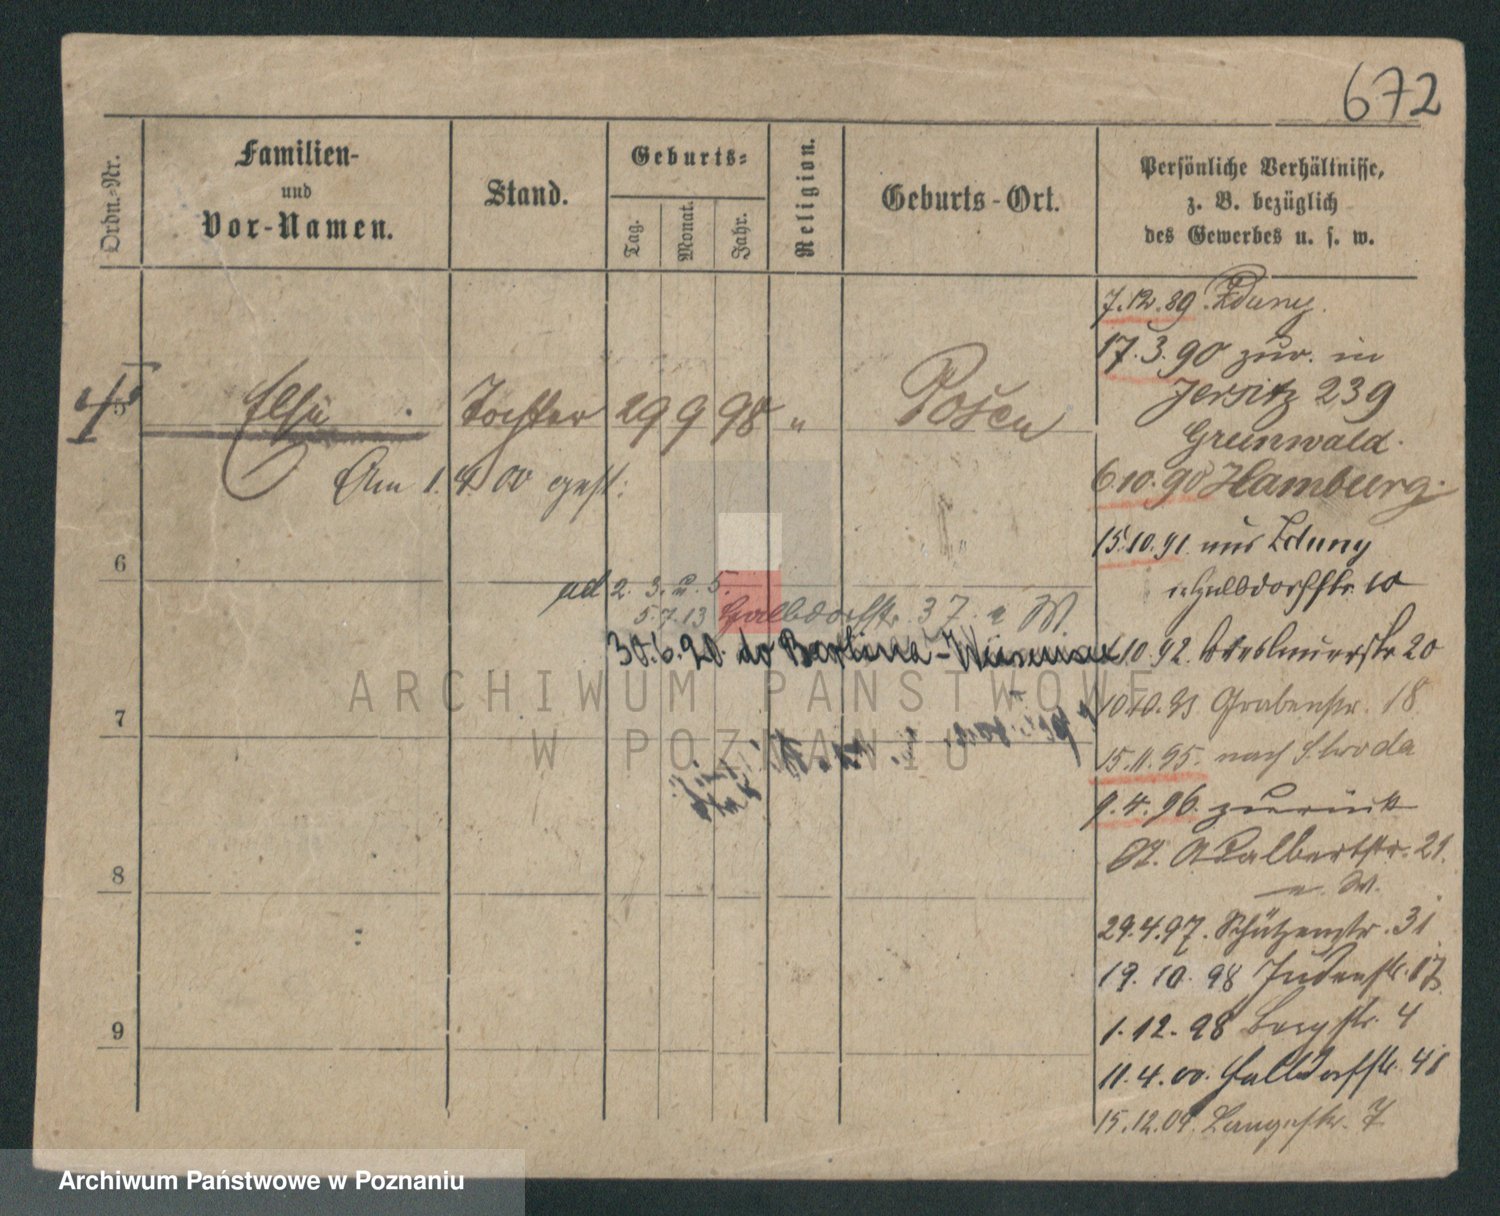 672
Ordn.-Nr.
Familien-
und
Vor-Namen.
Stand.
Geburts-
Tag.
Monat.
Jahr.
Religion.
Geburts-Ort.
Persönliche Verhältnisse,
z. B. bezüglich
des Gewerbes u. s. w.
7.12.89 Zduny.
17.3.90 zur. in
Jersitz 239
Grunwald.
6.10.90 Hamburg.
15.10.91 aus Zduny
Halbdorfstr. 10
10.92. Breslauerstr 20
10.10.93 Grabenstr. 18
15.11.95. nach Schroda
9.4.96. zurück
St. Adalbertstr. 21.
u. W.
29.4.97. Schützenstr. 31
19.10.98 Judenstr. 17
1.12.98 Bergstr. 4
11.4.00. Halbdorfstr. 41
15.12.09. Langestr. 7
5 Else Tochter 29 9 98 " Posen
Am 1. 4. 00 gest.
6
ad 2. 3. u. 5.
5.7.13 Halbdorfstr. 37. u W.
30.6.20. do Berlina-
7
8
9
ARCHIWUM PAŃSTWOWE
W POZNANIU
Archiwum Państwowe w Poznaniu